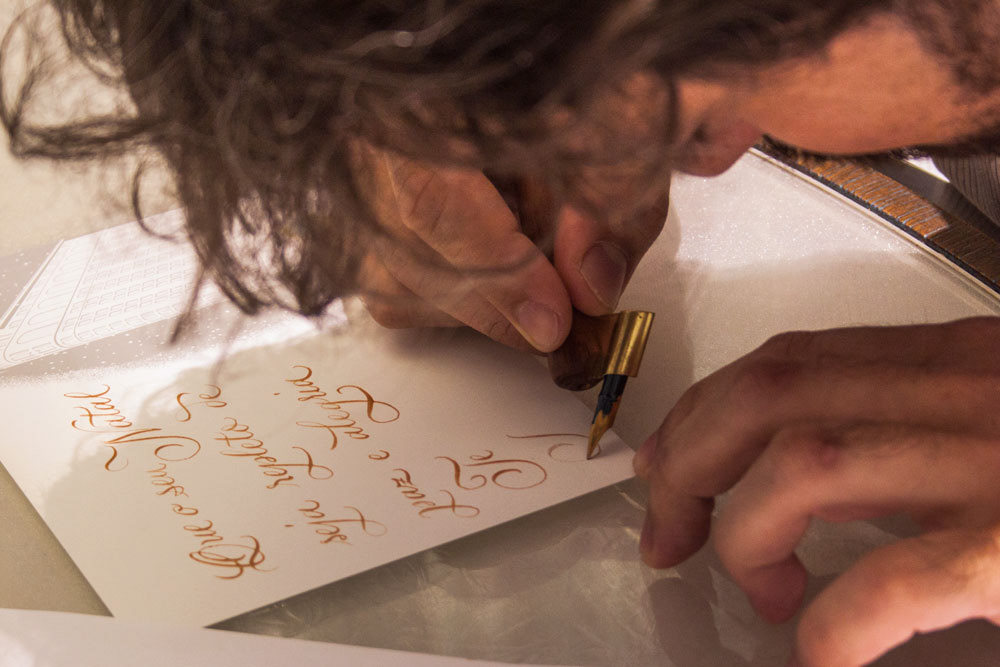 Que o seu Natal
seja repleto de
paz e alegria